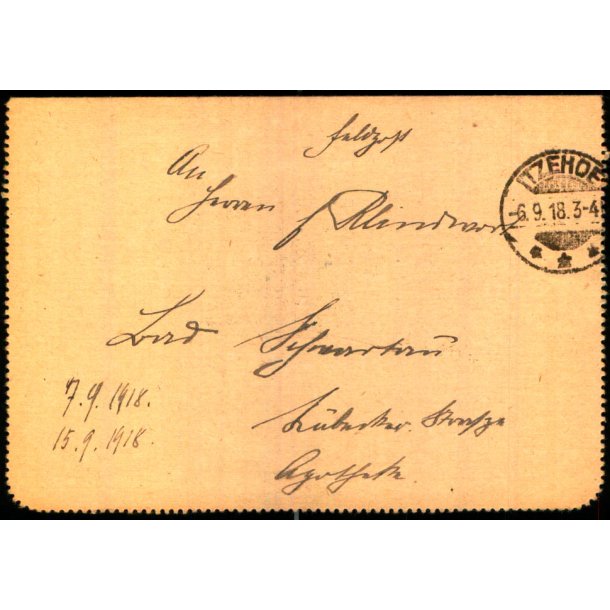 Feldpost
An
Herrn Klindwort
ITZEHOE
-6.9.18.3-4
Bad Schwartau
7.9.1918.
15.9.1918.
Lübecker Strasse
Apotheke.